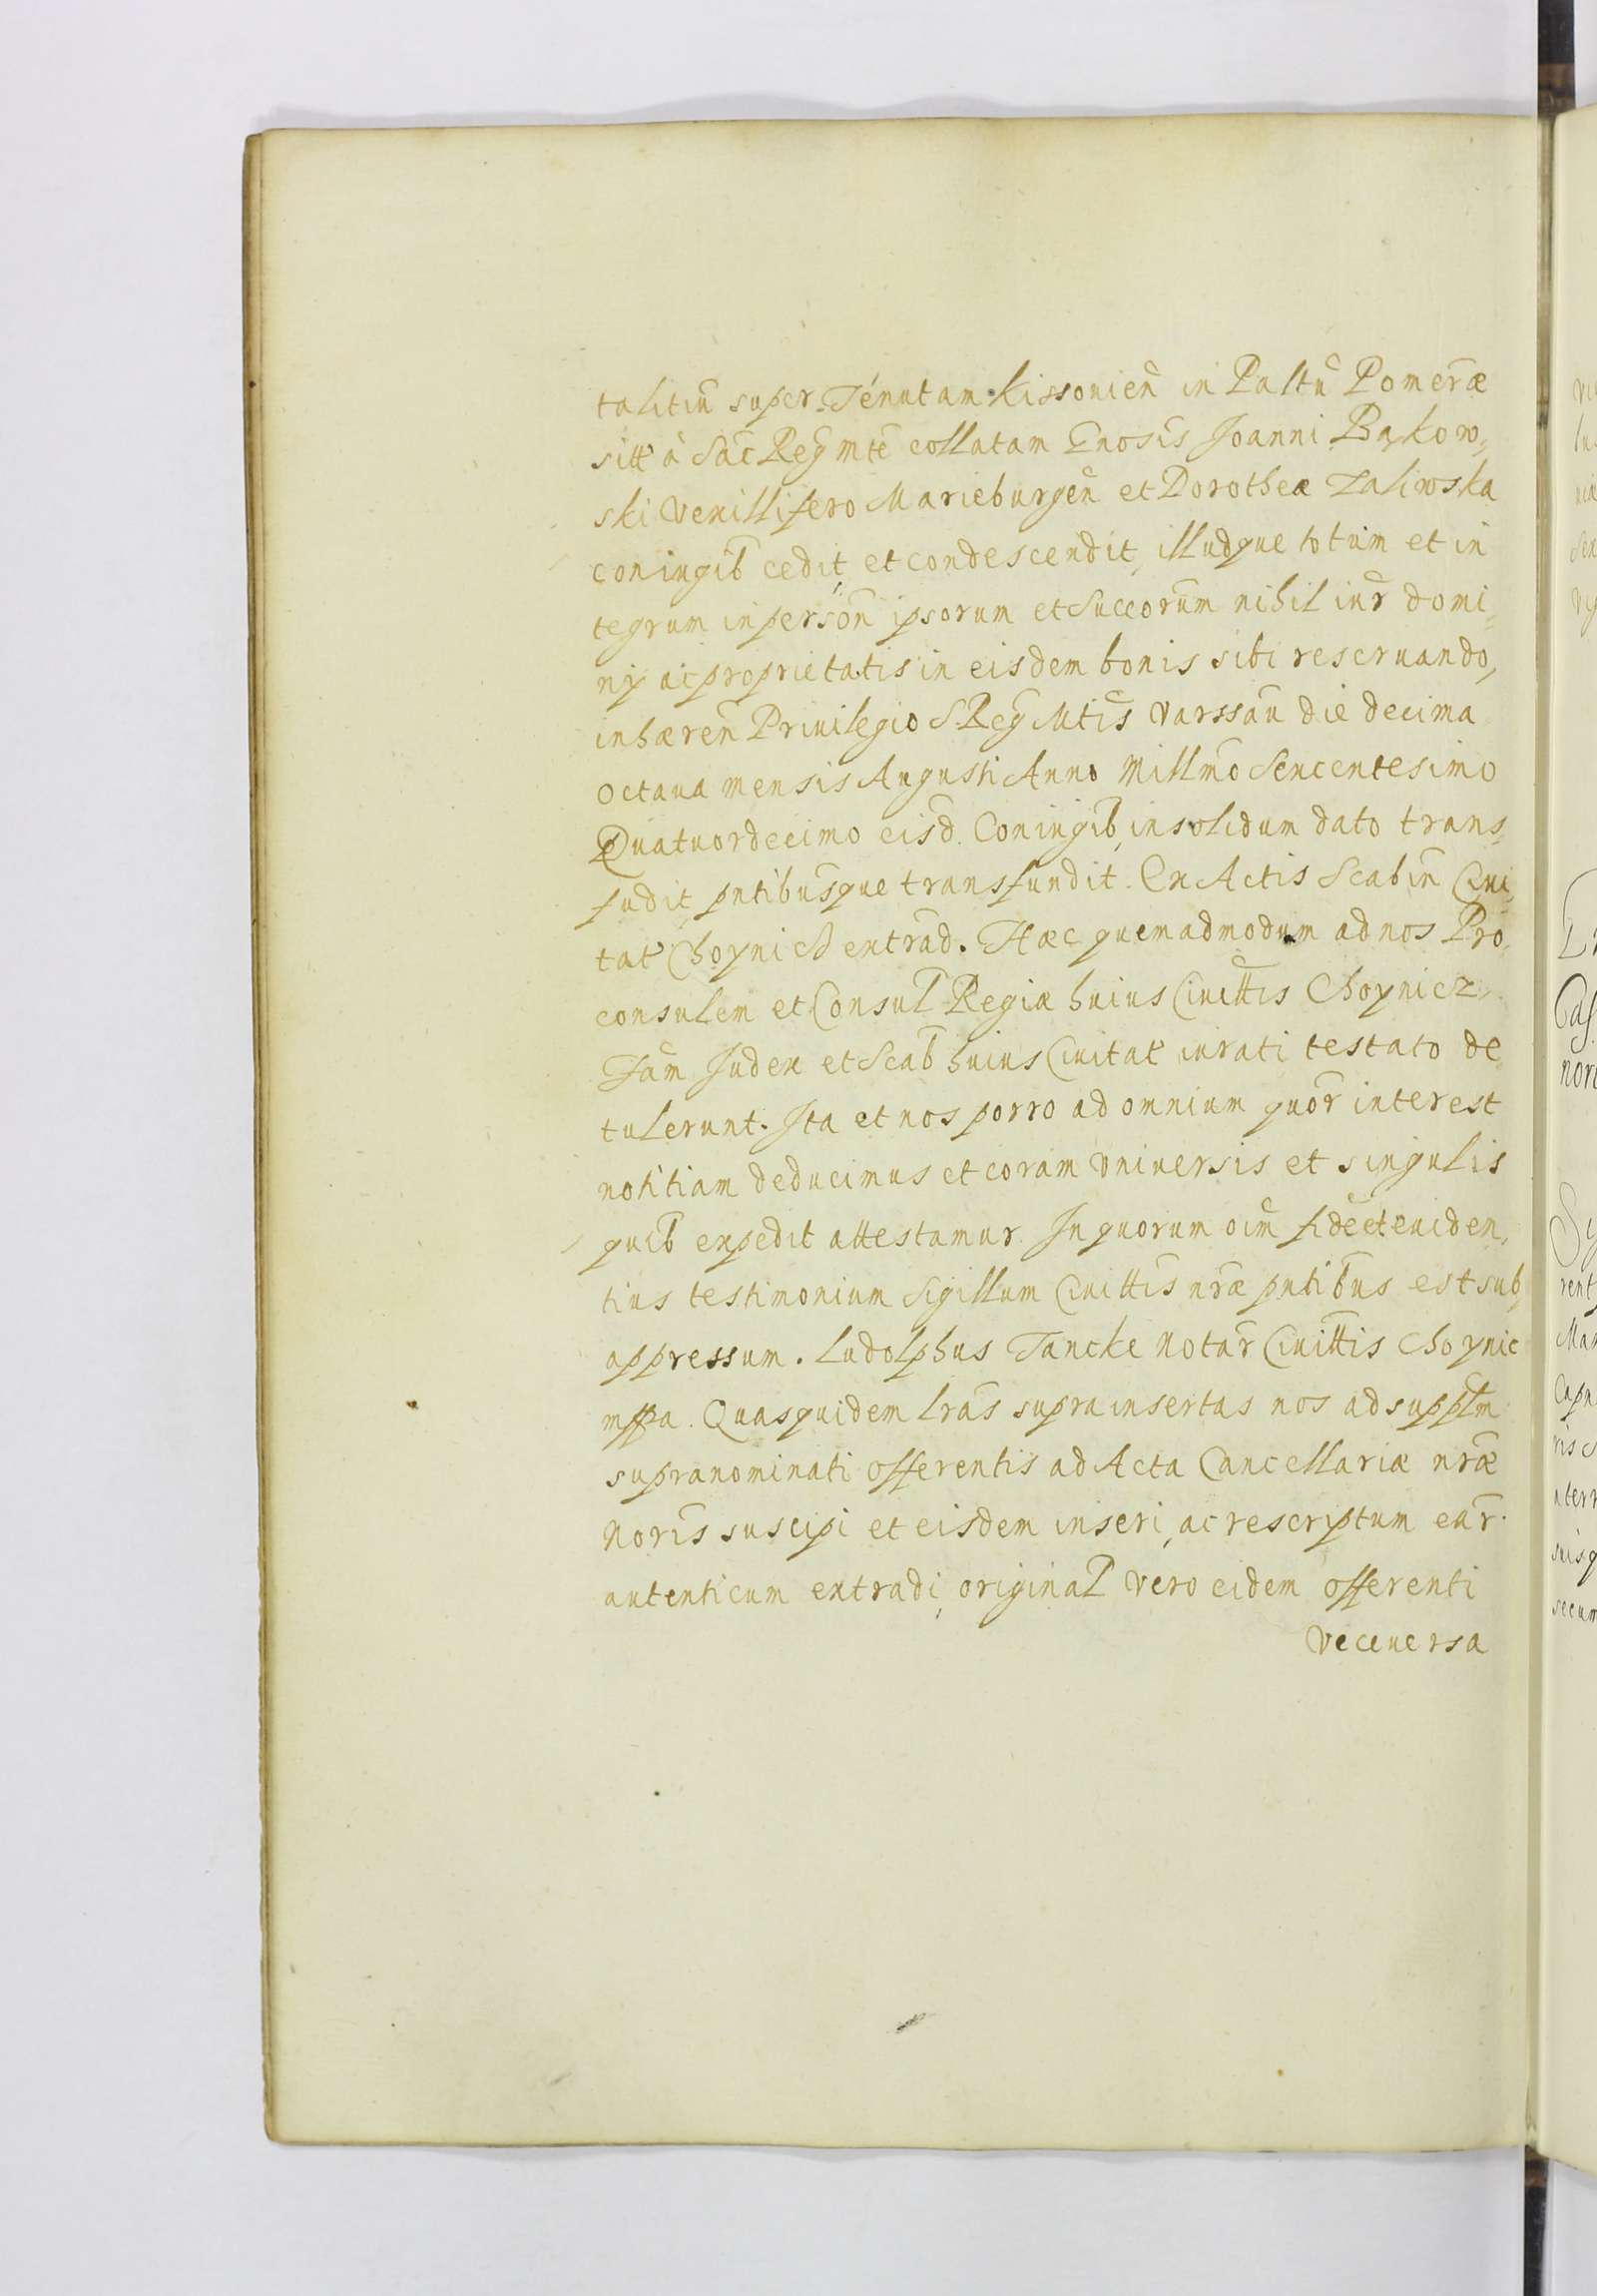 talitiū super Tenutam Kissonień in Paltū Pomeræ
sitt à Sac Reg Mte collatam Gnosis Joanni Bąkow,
ski Vexillifero Marieburgeń et Dorotheæ Zaliwska
coniugib cedit et condescendit, illudque totum et in
tegrum in person ipsorum et Succorum nihil iur domi,
nÿ ac proprietatis in eisdem bonis sibi reseruando,
inhæren Priuilegio S Reg Mtis Varssau die decima
octaua mensis Augusti Anno Millmo Sexcentesimo
Quatuordecimo eisd. Coniugib, insolidum dato trans,
fudit pntibusque transfundit. Ex Actis Scabin Ciui,
tat Choynich extrad. Hæc quemadmodum ad nos Pro,
consulem et Consul Regiæ huius Ciuittis Choynicz
Fam Judex et Scab huius Ciuitat iurati testato de
tulerunt. Ita et nos porro ad omnium quor interest
notitiam deducimus et coram vniuersis et singulis
quib expedit attestamur. In quorum oim fidē et euiden,
tius testimonium Sigillum Ciuittis nræ pntibus est sub
appressum. Ludolphus Tancke Notar Ciuittis Choynic
mppa. Quasquidem lras supra insertas nos ad supplm
supranominati offerentis ad Acta Cancellariæ nræ
Noris suscipi et eisdem inseri, ac rescriptum ear.
autenticum extradi, original vero eidem offerenti
Veceuersa